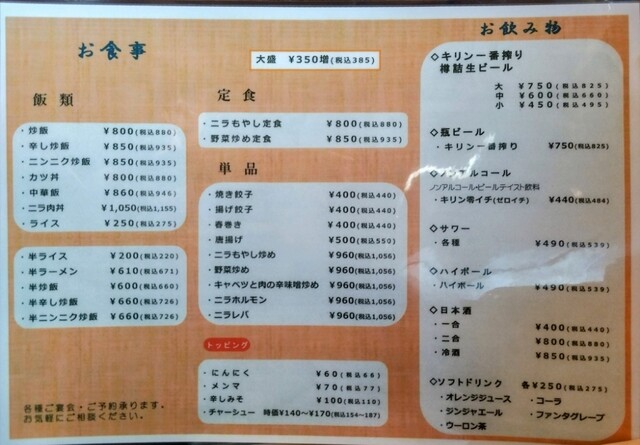 お食事
大盛 ¥350増(税込385)
飯類
・炒飯 ¥800(税込880)
・辛し炒飯 ¥850(税込935)
・ニンニク炒飯 ¥850(税込935)
・カツ丼 ¥800(税込880)
・中華飯 ¥860(税込946)
・ニラ肉丼 ¥1,050(税込1,155)
・ライス ¥250(税込275)
・半ライス ¥200(税込220)
・半ラーメン ¥610(税込671)
・半炒飯 ¥600(税込660)
・半辛し炒飯 ¥660(税込726)
・半ニンニク炒飯 ¥660(税込726)
各種ご宴会・ご予約承ります。
お気軽にご相談ください。
定食
・ニラもやし定食 ¥800(税込880)
・野菜炒め定食 ¥850(税込935)
単品
・焼き餃子 ¥400(税込440)
・揚げ餃子 ¥400(税込440)
・春巻き ¥400(税込440)
・唐揚げ ¥500(税込550)
・ニラもやし炒め ¥960(税込1,056)
・野菜炒め ¥960(税込1,056)
・キャベツと肉の辛味噌炒め ¥960(税込1,056)
・ニラホルモン ¥960(税込1,056)
・ニラレバ ¥960(税込1,056)
トッピング
・にんにく ¥60(税込66)
・メンマ ¥70(税込77)
・辛しみそ ¥100(税込110)
・チャーシュー 時価¥140～¥170(税込154～187)
お飲み物
◇キリン一番搾り
樽詰生ビール
大 ¥750(税込825)
中 ¥600(税込660)
小 ¥450(税込495)
◇瓶ビール
・キリン一番搾り ¥750(税込825)
◇ノンアルコール
ノンアルコール・ビールテイスト飲料
・キリン零イチ(ゼロイチ) ¥440(税込484)
◇サワー
・各種 ¥490(税込539)
◇ハイボール
・ハイボール ¥490(税込539)
◇日本酒
・一合 ¥400(税込440)
・二合 ¥800(税込880)
・冷酒 ¥850(税込935)
◇ソフトドリンク 各¥250(税込275)
・オレンジジュース ・コーラ
・ジンジャエール ・ファンタグレープ
・ウーロン茶